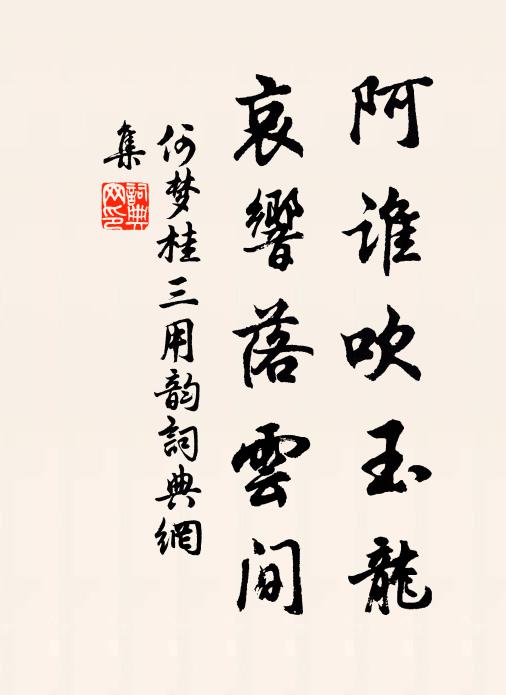 阿谁吹玉龍
哀響落雲间
何梦桂三用韵詞典網
集
詞典网印